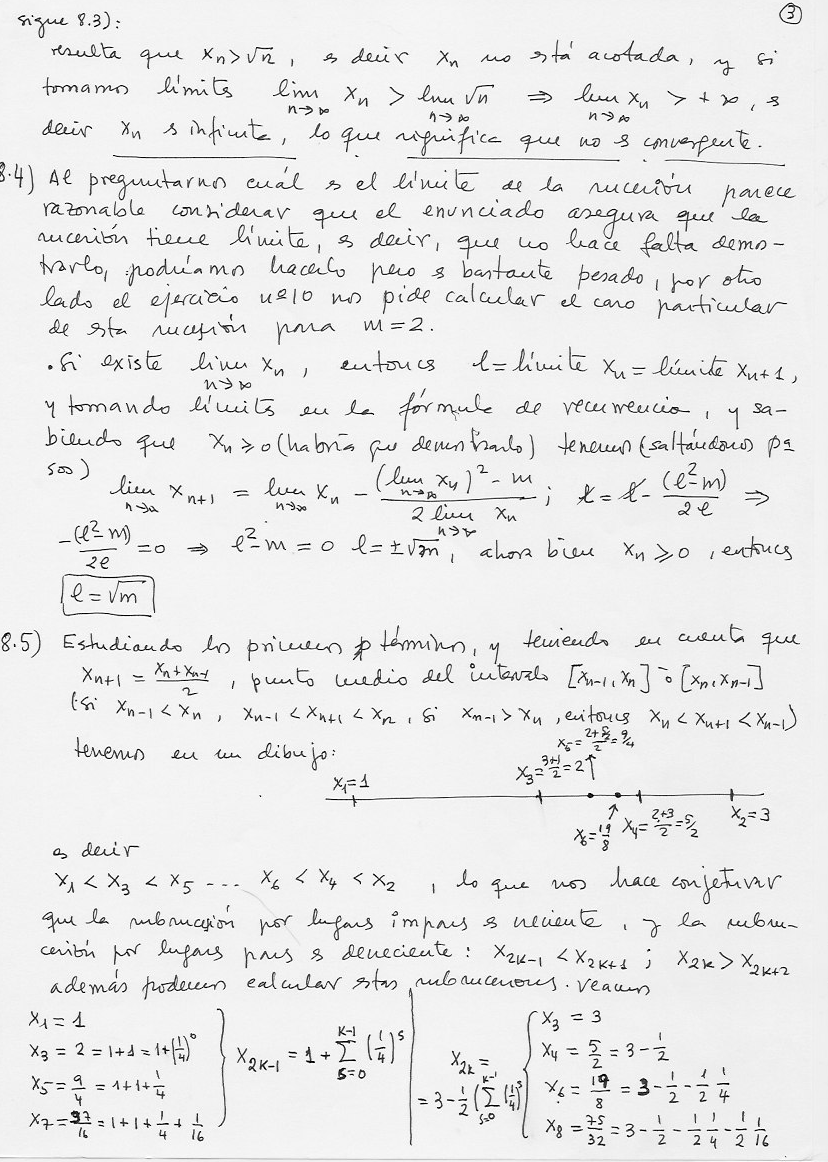 3
sigue 8.3):
resulta que xₙ > √n, es decir xₙ no está acotada, y si
tomamos límites lim n→∞ xₙ > lim n→∞ √n ⇒ lim n→∞ xₙ > +∞, es
decir xₙ es infinita, lo que significa que no es convergente.
8.4) Al preguntarnos cuál es el límite de la sucesión parece
razonable considerar que el enunciado asegura que la
sucesión tiene límite, es decir, que no hace falta demos-
trarlo, podríamos hacerlo pero es bastante pesado, por otro
lado el ejercicio nº 10 nos pide calcular el caso particular
de esta sucesión para m=2.
. Si existe lim n→∞ xₙ, entonces l = límite xₙ = límite xₙ₊₁,
y tomando límites en la fórmula de recurrencia, y sa-
biendo que xₙ ≥ 0 (habría que demostrarlo) tenemos (saltándonos pa-
sos)
lim n→∞ xₙ₊₁ = lim n→∞ xₙ - ((lim n→∞ xₙ)² - m)/(2 lim n→∞ xₙ) ; l = l - (l²-m)/2l ⇒
-(l²-m)/2l = 0 ⇒ l²-m = 0 l = ±√m, ahora bien xₙ ≥ 0, entonces
l = √m
8.5) Estudiando los primeros términos, y teniendo en cuenta que
xₙ₊₁ = (xₙ + xₙ₋₁)/2, punto medio del intervalo [xₙ₋₁, xₙ] ó [xₙ, xₙ₋₁]
(Si xₙ₋₁ < xₙ, xₙ₋₁ < xₙ₊₁ < xₙ, si xₙ₋₁ > xₙ, entonces xₙ < xₙ₊₁ < xₙ₋₁)
tenemos en un dibujo:
x₅ = (2+5/2)/2 = 9/4
x₁ = 1
x₃ = (3+1)/2 = 2
x₆ = 19/8
x₄ = (2+3)/2 = 5/2
x₂ = 3
es decir
x₁ < x₃ < x₅ .... x₆ < x₄ < x₂, lo que nos hace conjeturar
que la subsucesión por lugares impares es creciente, y la subsu-
cesión por lugares pares es decreciente: x₂ₖ₋₁ < x₂ₖ₊₁ ; x₂ₖ > x₂ₖ₊₂
además podemos calcular estas subsucesiones. Veamos
x₁ = 1
x₃ = 2 = 1+1 = 1+(1/4)⁰
x₅ = 9/4 = 1+1+1/4
x₇ = 37/16 = 1+1+1/4+1/16
x₂ₖ₋₁ = 1 + Σ_{s=0}^{k-1} (1/4)ˢ
x₂ₖ =
= 3 - 1/2 (Σ_{s=0}^{k-1} (1/4)ˢ
x₃ = 3
x₄ = 5/2 = 3 - 1/2
x₆ = 19/8 = 3 - 1/2 - 1/2 1/4
x₈ = 75/32 = 3 - 1/2 - 1/2 1/4 - 1/2 1/16